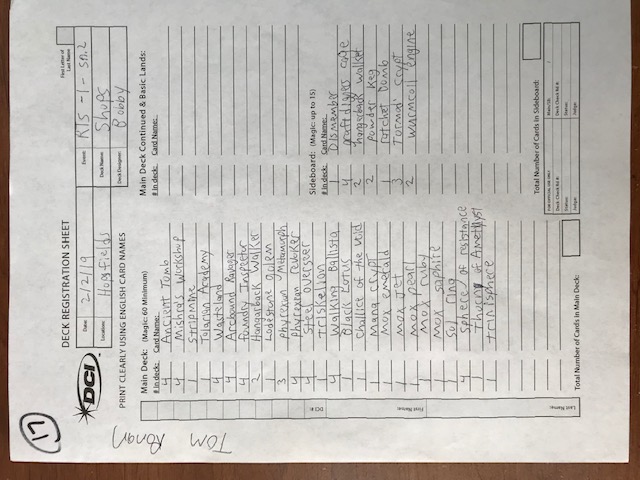 17
DECK REGISTRATION SHEET
First Letter of
Last Name
DCI
Date: 2/2/19
Event: RIS -1- sn.2
Location: Hopsfields
Deck Name: Shops
Deck Designer: Bobby
PRINT CLEARLY USING ENGLISH CARD NAMES
TOM Ronan
Main Deck: (Magic: 60 Minimum)
# in deck: Card Name:
4 Ancient Tomb
4 Mishra's Workshop
1 stripmine
1 Tolarian Academy
4 Wasteland
4 Arcbound Ravager
4 foundry Inspector
2 Hangarback Walker
1 Lodestone golem
3 phyrexian Metamorph
4 phyrexian revoker
4 Steel overseer
1 triskelion
4 Walking Ballista
1 Black Lotus
1 Challice of the Void
1 Mana crypt
1 mox emerald
1 mox Jet
1 mox pearl
1 mox ruby
1 mox saphire
1 sol ring
4 sphere of resistance
1 thorn of Amethyst
1 trinisphere
Total Number of Cards in Main Deck:
Main Deck Continued & Basic Lands:
# in deck: Card Name:
Sideboard: (Magic: up to 15)
# in deck: Card Name:
1 Dismember
4 graftdiggers cage
2 hangerback walker
2 powder Keg
1 ratchet bomb
3 Tormod' Crypt
2 wurmcoil engine
Total Number of Cards in Sideboard:
FOR OFFICIAL USE ONLY
Main/SB: /
Deck Check Rd #:
Deck Check Rd #:
Status:
Status:
Judge:
Judge:
DCI #:
First Name:
Last Name: